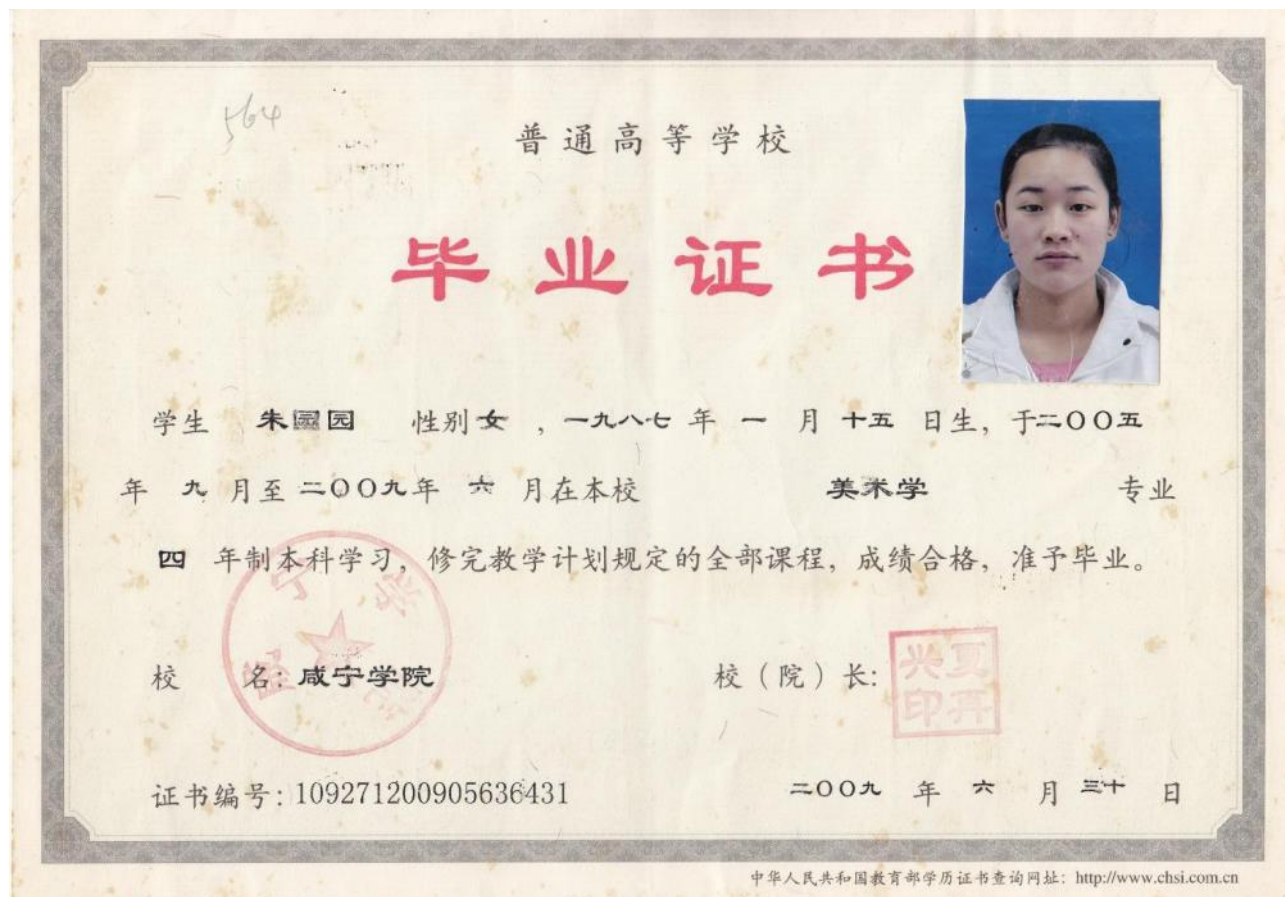 564
普通高等学校
毕业证书
学生 朱园 性别女，一九八七年一月十五日生，于二〇〇五
年九月至二〇〇九年六月在本校 美术学 专业
四年制本科学习，修完教学计划规定的全部课程，成绩合格，准予毕业。
校 名：咸宁学院 校（院）长：
夏再兴印
证书编号：109271200905636431 二〇〇九年六月三十日
中华人民共和国教育部学历证书查询网址：http://www.chsi.com.cn